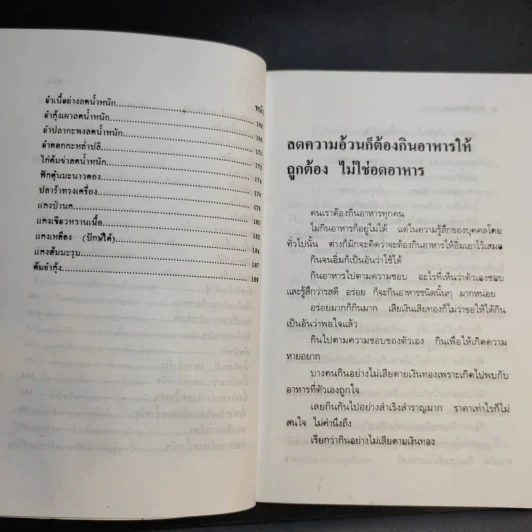 หน้า
ยำเนื้อย่างลดน้ำหนัก
ยำกุ้งเผาลดน้ำหนัก
ยำปลากะพงลดน้ำหนัก
ยำดอกกะหล่ำปลี
ไก่ต้มข่าลดน้ำหนัก
ฟักตุ๋นมะนาวดอง
ปลาร้าทรงเครื่อง
แกงป่านก
แกงเขียวหวานเนื้อ
แกงเหลือง (ปักษ์ใต้)
แกงส้มมะรุม
ต้มยำกุ้ง
ลดความอ้วนก็ต้องกินอาหารให้
ถูกต้อง ไม่ใช่อดอาหาร
คนเราต้องกินอาหารทุกคน
ไม่กินอาหารก็อยู่ไม่ได้ แต่ในความรู้สึกของบุคคลโดย
ทั่วไปนั้น ต่างก็มักจะคิดว่าจะต้องกินอาหารให้อิ่มเอาไว้เสมอ
กินจนอิ่มก็เป็นอันว่าใช้ได้
กินอาหารไปตามความชอบ อะไรที่เห็นว่าตัวเองชอบ
และรู้สึกว่ารสดี อร่อย ก็จะกินอาหารชนิดนั้นๆ มากหน่อย
อร่อยมากก็กินมาก เสียเงินเสียทองก็ไม่ว่าขอให้ได้กิน
เป็นอันว่าพอใจแล้ว
กินไปตามความชอบของตัวเอง กินเพื่อให้เกิดความ
หายอยาก
บางคนกินอย่างไม่เสียดายเงินทองเพราะเกิดไปพบกับ
อาหารที่ตัวเองถูกใจ
เลยกินกันไปอย่างสำเริงสำราญมาก ราคาเท่าไรก็ไม่
สนใจ ไม่คำนึงถึง
เรียกว่ากินอย่างไม่เสียดายเงินทอง